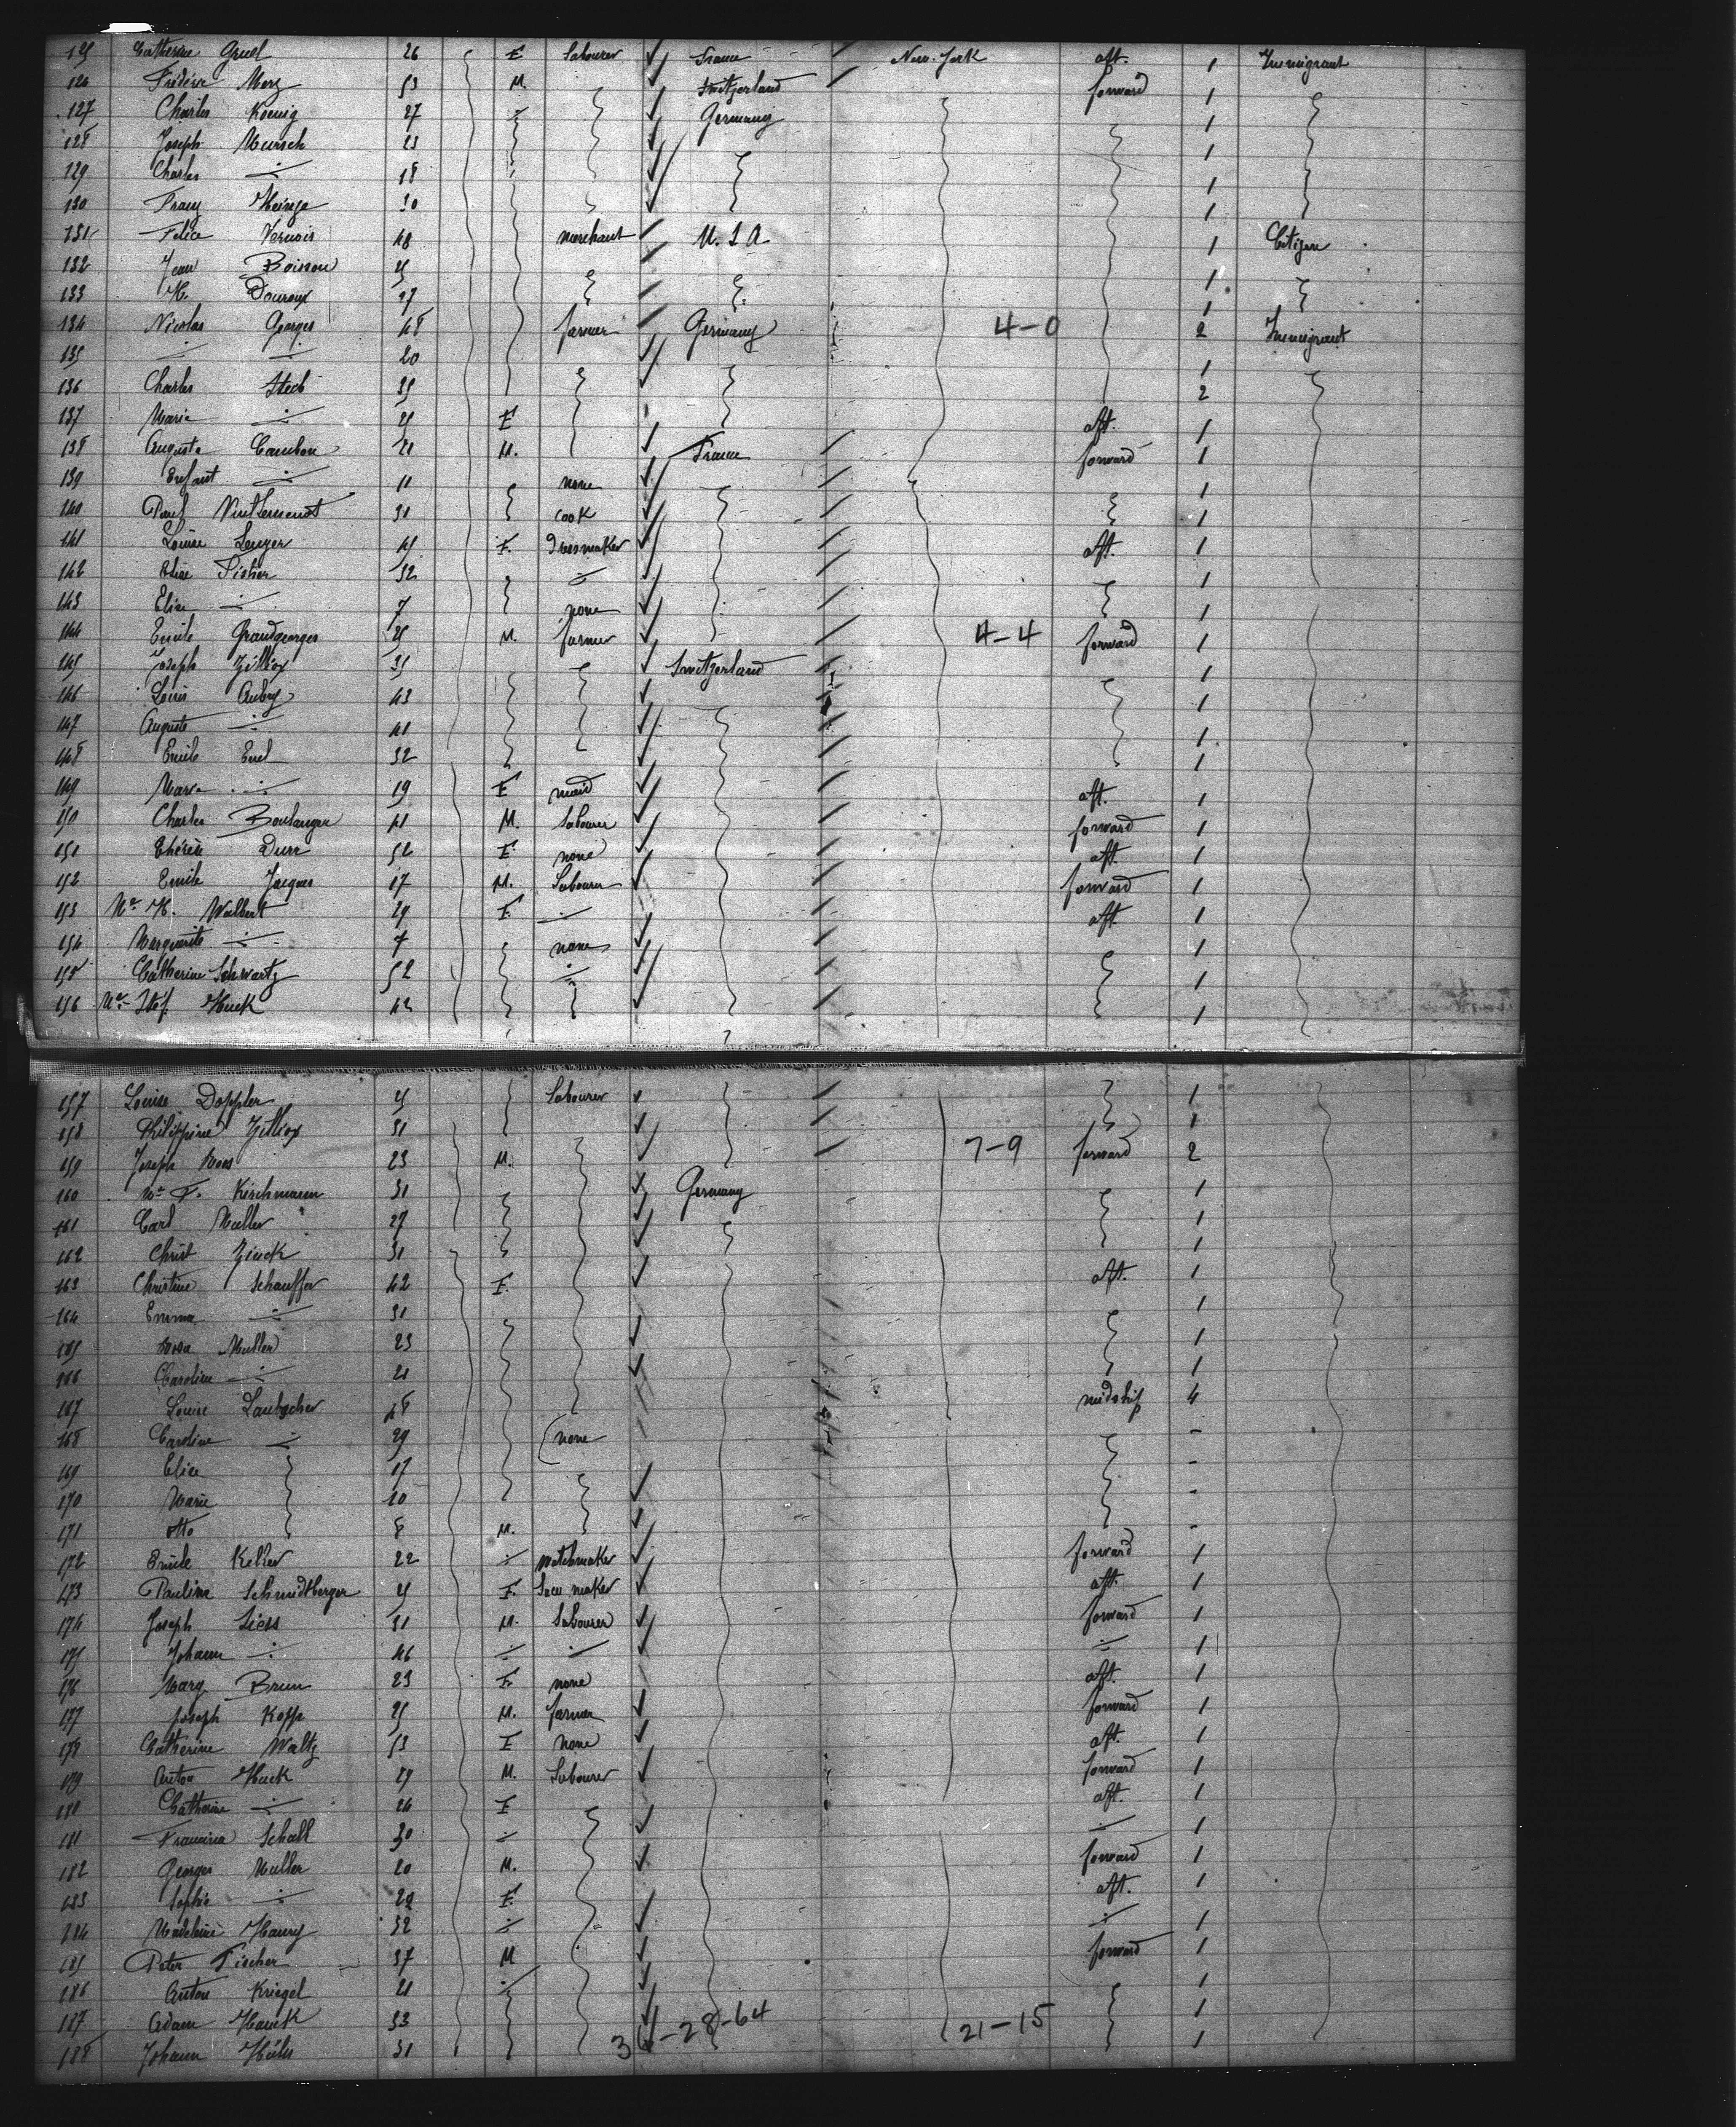 125 Catherine Gruel 26 F Labourer France New-York aft. 1 Immigrant
126 Frédéric Merz 53 M. Switzerland forward 1
127 Charles Koenig 27 Germany 1
128 Joseph Mursch 23 1
129 Charles 18 1
130 Franz 30 1
131 Felice 48 merchant U.S.A 1 Citizen
132 Jean Boisson 1
133 17 1
134 Nicolas Georges 48 farmer Germany 4-0 2 Immigrant
135 20 1
136 Charles 35 2
137 Marie F aft. 1
138 Auguste Cambon 21 M. France forward 1
139 Enfant 11 none 1
140 Paul 31 cook 1
141 Louise 41 F. Dressmaker aft. 1
142 32 1
143 Elise 7 none 1
144 Emile Grandgeorges 25 M. farmer 4-4 forward 1
145 Joseph Zilliox 35 Switzerland 1
146 Louis Aubry 43 1
147 Auguste 41 1
148 Emile 32 1
149 Marie 19 F maid aft. 1
150 Charles Boulanger 41 M. Labourer forward 1
151 Thérèse Durr 52 F none aft. 1
152 Emile Jacques 17 M. Labourer forward 1
153 Walbert 29 F. aft. 1
154 Marguerite 7 none 1
155 Catherine Schwartz 52 1
156 Huck 42 1
157 Louise Doppler Labourer 1
158 Philippine Zilliox 31 1
159 Joseph 23 M. 7-9 forward 2
160 F. Kirchmann 31 Germany 1
161 Carl Muller 27 1
162 Christ Zinck 31 1
163 Christine Schauffer 42 F. aft. 1
164 Emma 31 1
165 Rosa Muller 23 1
166 Caroline 21 1
167 Louise 48 midship 4
168 Caroline 29 none -
169 Elise 17 -
170 Marie 10 -
171 Otto 8 M. -
172 Emile Keller 22 Watchmaker forward 1
173 Pauline Schmidtberger F. aft. 1
174 Joseph Liess 31 M. Labourer forward 1
175 Johann 46 1
176 Marg. Brun 23 F. none aft. 1
177 Joseph Kopp 25 M. farmer forward 1
178 Catherine Waltz 53 F none aft. 1
179 Anton Huck 29 M. Labourer forward 1
180 Catherine 26 F aft. 1
181 Schall 30 1
182 Georges Muller 20 M. forward 1
183 Sophie 22 F. aft. 1
184 Madeleine Haury 32 1
185 Peter Fischer 37 M forward 1
186 Anton Kriegel 21 1
187 Adam Hauck 33 1
36-28-64 21-15
188 Johann 31 1